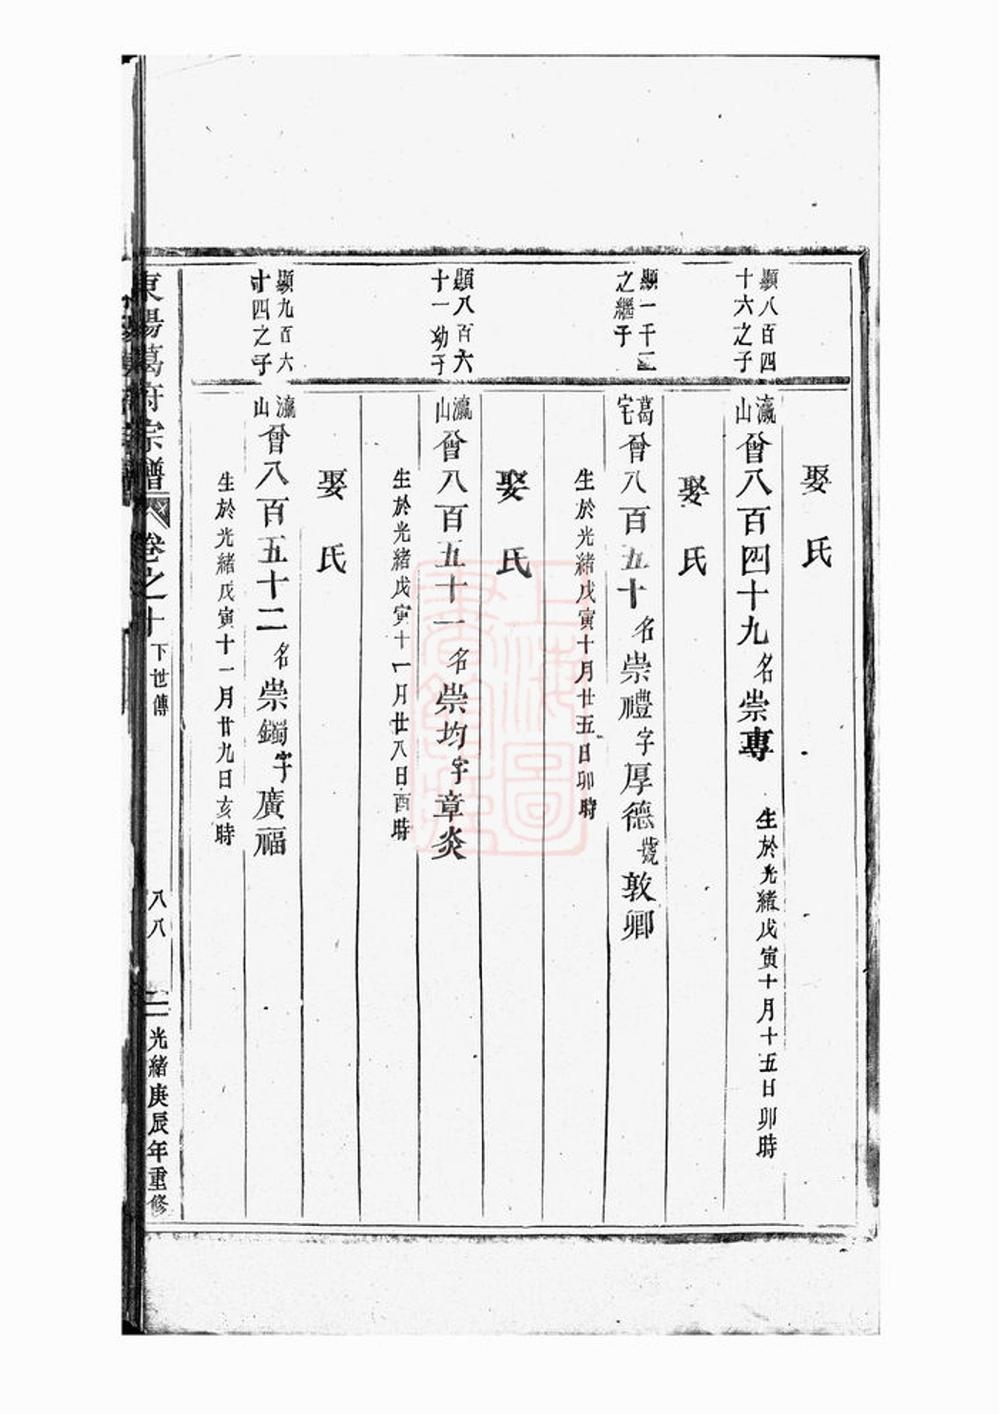 娶 氏
顯八百四
十六之子
瀛山曾八百四十九名崇專 生於光緒戊寅十月十五日卯時
娶 氏
顯一千一
之繼子
葛宅曾八百五十名崇禮字厚德號敦卿
生於光緒戊寅十月廿五日卯時
娶 氏
顯八百六
十一幼子
瀛山曾八百五十一名崇均字章炎
生於光緒戊寅十一月廿八日酉時
娶 氏
顯九百六
十四之子
瀛山曾八百五十二名崇鐲字廣福
生於光緒戊寅十一月廿九日亥時
東陽葛府宗譜 卷之十 下世傳 八八 光緒庚辰年重修
上海圖書館藏